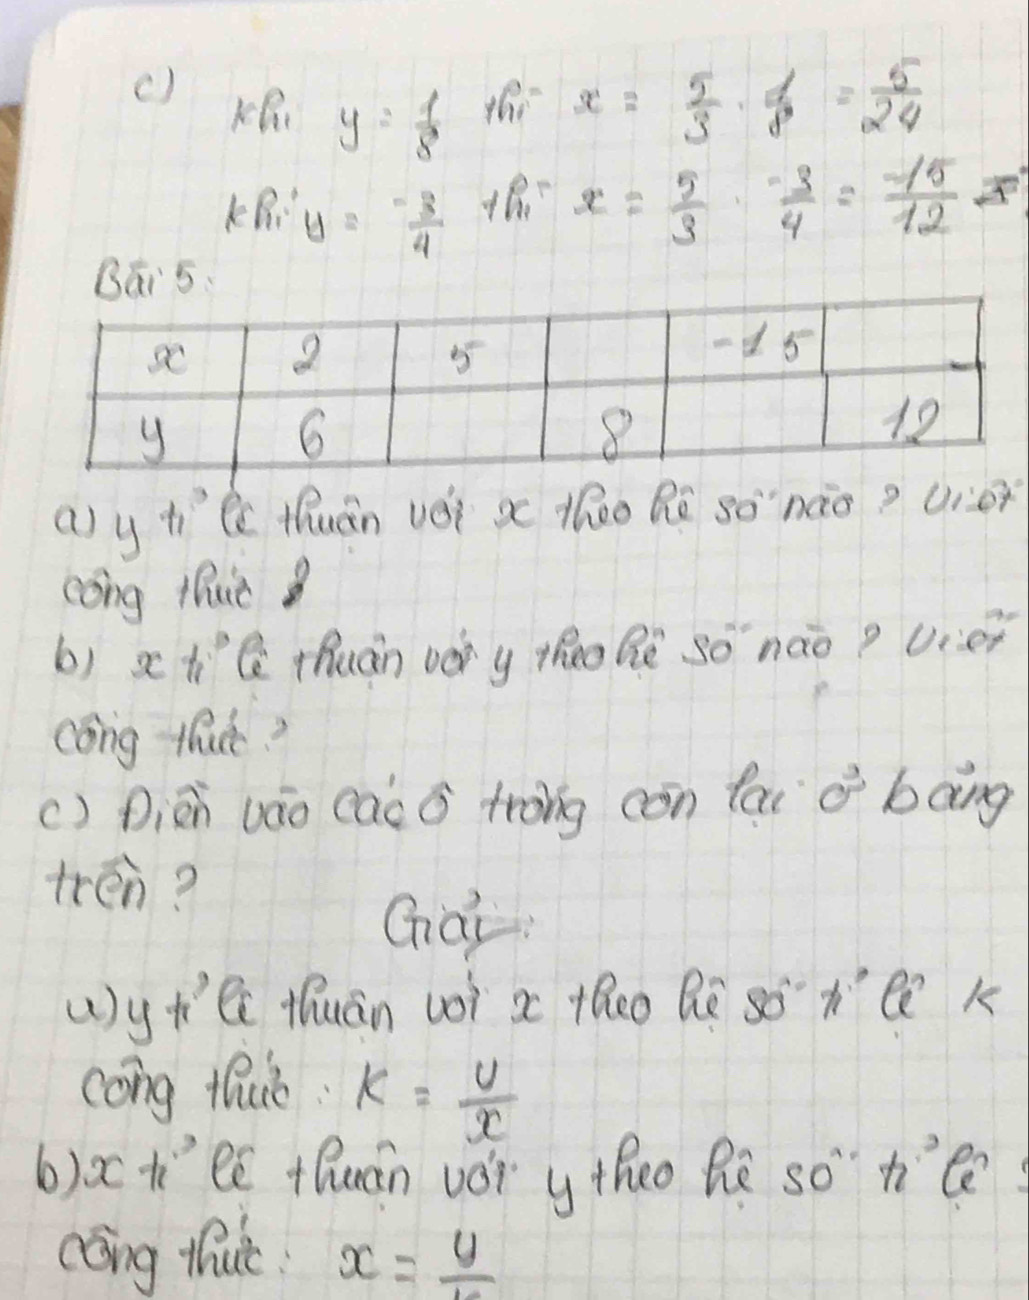 c) Khi y = 1/8 thì x = 5/3 . 1/8 = 5/24
khi y = -3/4 thì x = 5/3 . -3/4 = -15/12
Bài 5:
x 2 5 -15
y 6 8 12
a) y tỉ lệ thuận với x theo hệ số nào? Viết
công thức
b) x tỉ lệ thuận với y theo hệ số nào? Viết
công thức?
c) Điền vào các ô trống còn lại ở bảng
trên?
Giải:
a) y tỉ lệ thuận với x theo hệ số tỉ lệ K
công thức: K = y/x
b) x tỉ lệ thuận với y theo hệ số tỉ lệ
công thức: x = y/